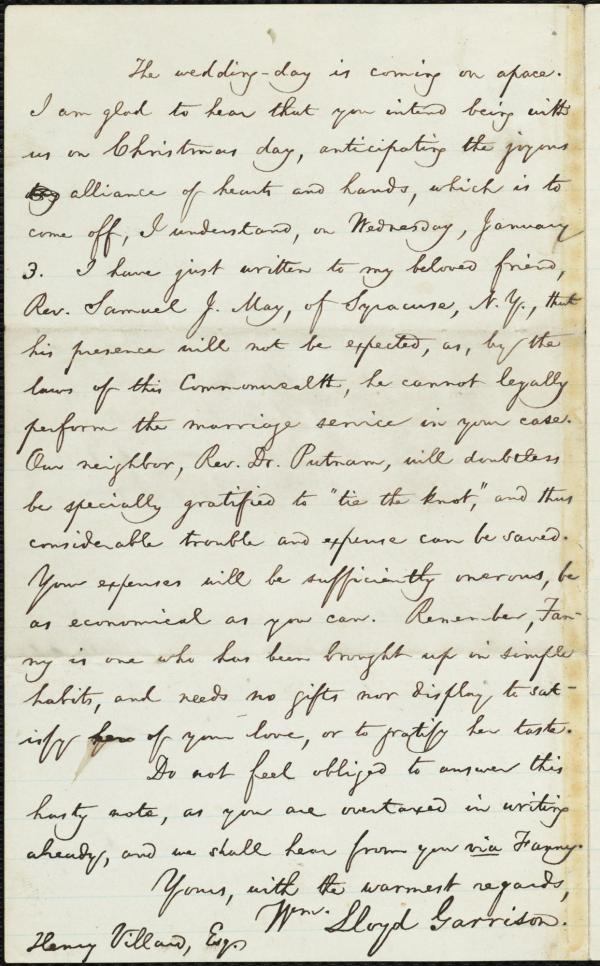 The wedding-day is coming on apace.
I am glad to hear that you intend being with
us on Christmas day, anticipating the joyous
alliance of hearts and hands, which is to
come off, I understand, on Wednesday, January
3. I have just written to my beloved friend,
Rev. Samuel J. May, of Syracuse, N.Y., that
his presence will not be expected, as, by the
laws of this Commonwealth, he cannot legally
perform the marriage service in your case.
Our neighbor, Rev. Dr. Putnam, will doubtless
be specially gratified to "tie the knot," and thus
considerable trouble and expense can be saved.
Your expenses will be sufficiently onerous, be
as economical as you can. Remember, Fan-
ny is one who has been brought up in simple
habits, and needs no gifts nor display to sat-
isfy her of your love, or to gratify her taste.
Do not feel obliged to answer this
hasty note, as you are overtaxed in writing
already, and we shall hear from you via Fanny.
Yours, with the warmest regards,
Wm. Lloyd Garrison.
Henry Villard, Esq.